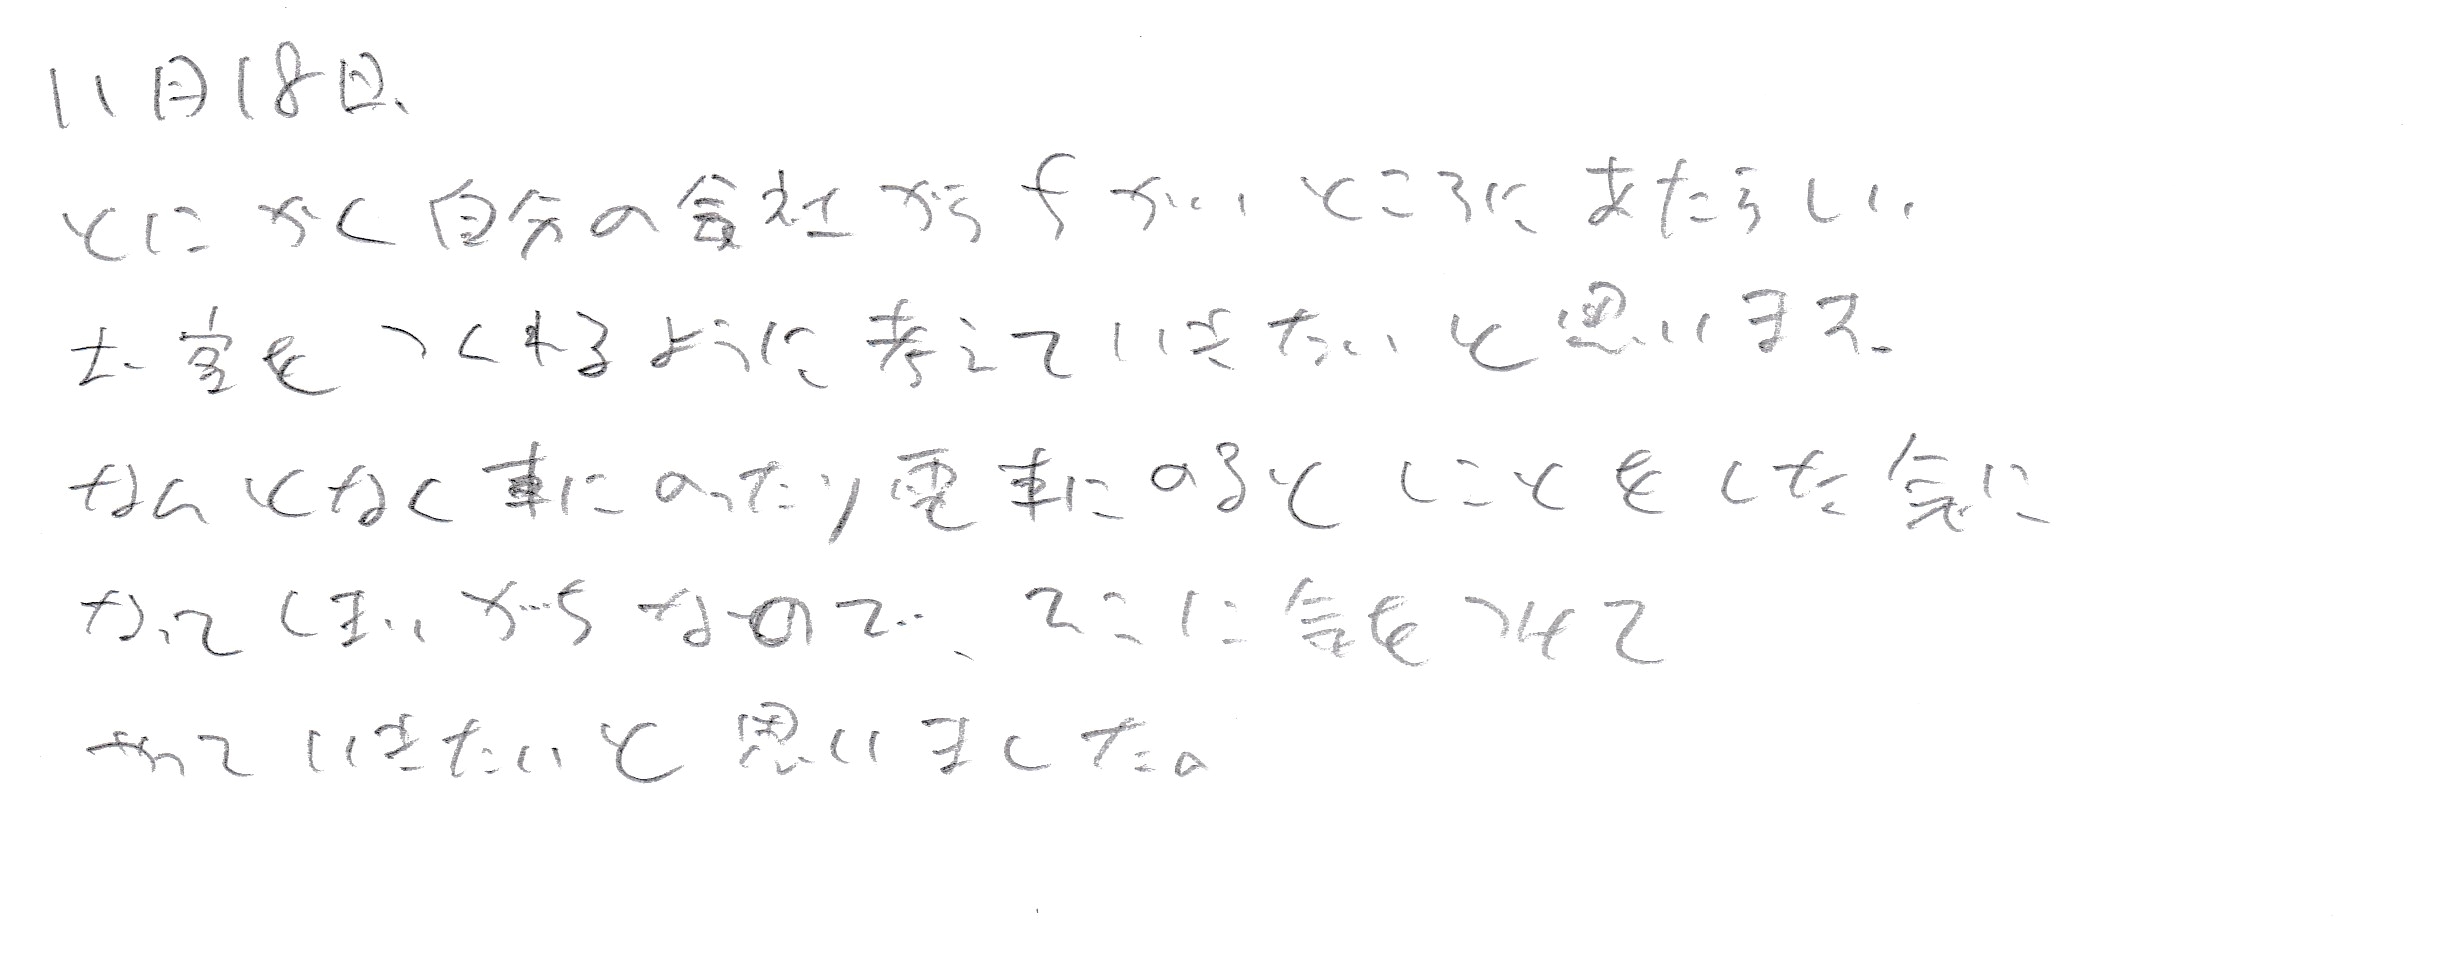 11月18日、
とにかく自分の会社からちかいところにあたらしい
お室をつくれるように考えていきたいと思います。
なんとなく車にのったり電車にのるとしごとをした気に
なってしまいがちなので、そこに気をつけて
やっていきたいと思いました。